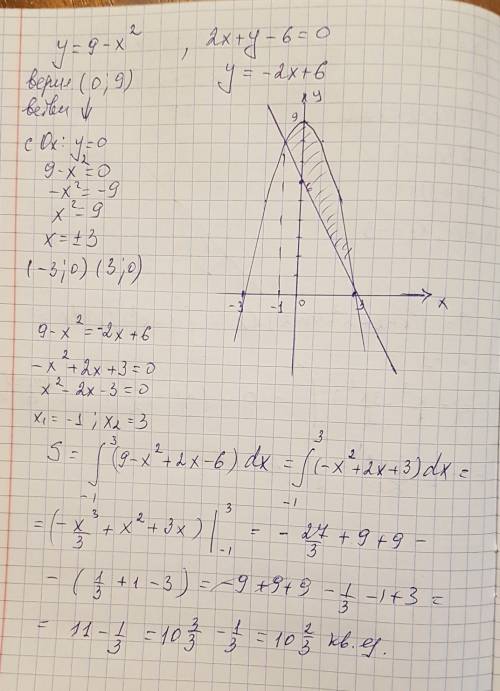 y = 9 - x² , 2x + y - 6 = 0
верш (0; 9) y = -2x + 6
ветви ↓
с Ox: y = 0
9 - x² = 0
-x² = -9
x² = 9
x = ±3
(-3; 0) (3; 0)
y
9
6
-3 -1 0 3 x
9 - x² = -2x + 6
-x² + 2x + 3 = 0
x² - 2x - 3 = 0
x₁ = -1 ; x₂ = 3
S = ∫₋₁³ (9 - x² + 2x - 6) dx = ∫₋₁³ (-x² + 2x + 3) dx =
= (-x³/3 + x² + 3x) |₋₁³ = - 27/3 + 9 + 9 -
- (1/3 + 1 - 3) = -9 + 9 + 9 - 1/3 - 1 + 3 =
= 11 - 1/3 = 10 3/3 - 1/3 = 10 2/3 кв. ед.